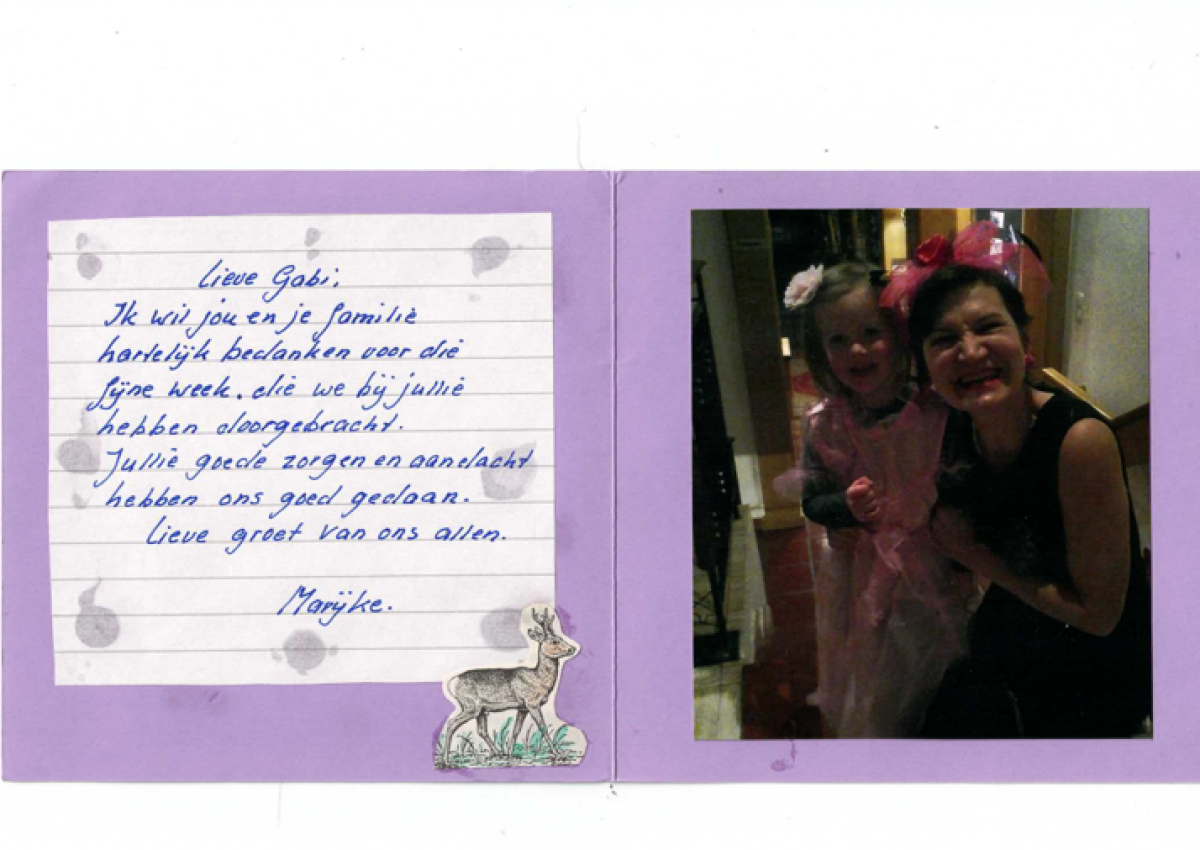 Lieve Gabi,
Ik wil jou en je familie
hartelijk bedanken voor die
fijne week, die we bij jullie
hebben doorgebracht.
Jullie goede zorgen en aandacht
hebben ons goed gedaan.
Lieve groet van ons allen.
Marijke.